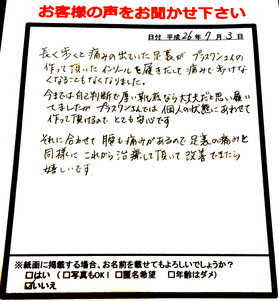 お客様の声をお聞かせ下さい
日付 平成26年7月3日
長く歩くと痛みの出ていた足裏がプラスワンさんの
作って頂いたインソールを履きだして痛みで歩けな
くなることもなくなりました。
今までは自己判断で厚い靴底なら大丈夫だと思い履い
てましたがプラスワンさんでは個人の状態にあわせて
作って頂けるので、とても安心です
それに合わせて腰も痛みがあるので足裏の痛みと
同様にこれから治療して頂いて改善できたら
嬉しいです
※紙面に掲載する場合、お名前を載せてもよろしいでしょうか？
□はい（□写真もOK！ □匿名希望 □年齢はダメ）
☑いいえ